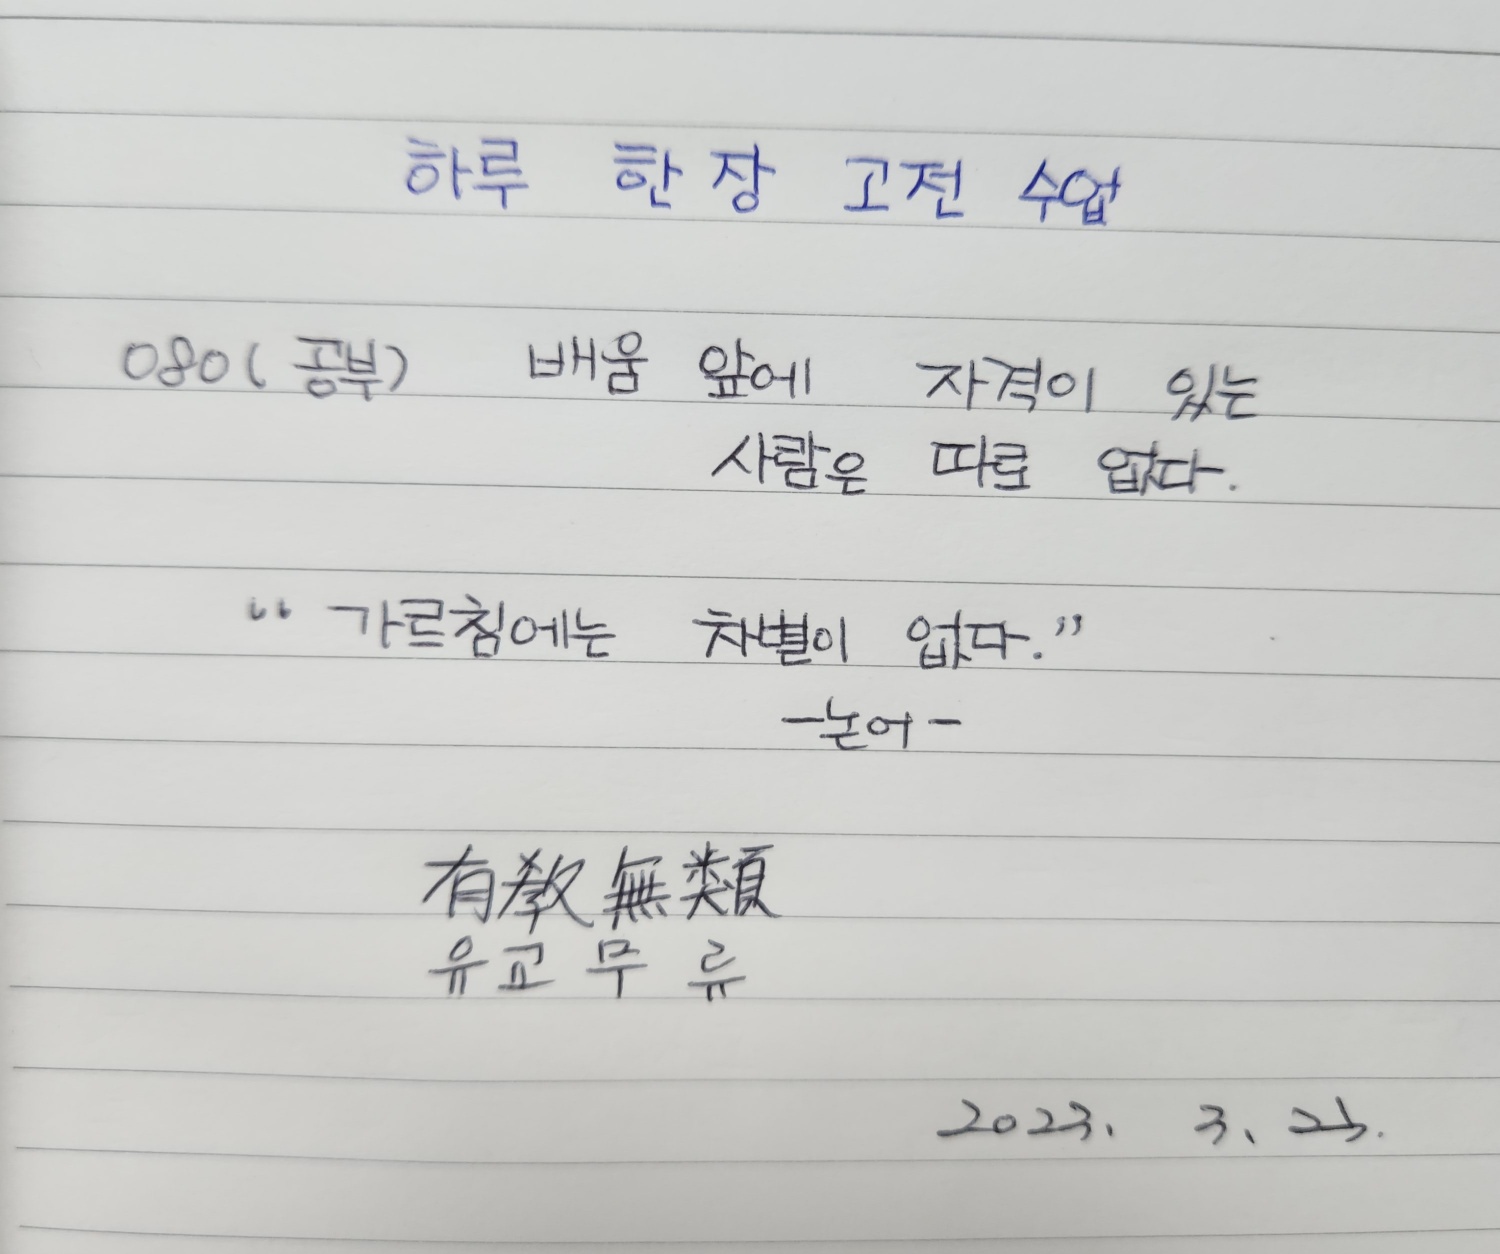 하루 한 장 고전 수업
080(공부) 배움 앞에 자격이 있는
사람은 따로 없다.
"가르침에는 차별이 없다."
-논어-
有敎無類
유교무류
2023. 3. 25.